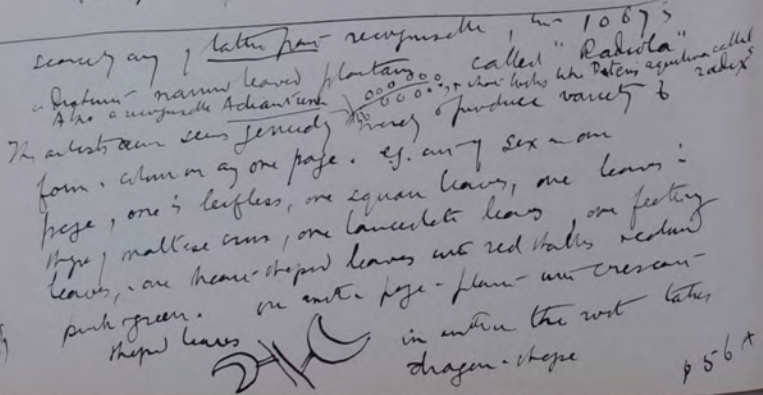 scarcely any, latter part recognisable, in 1067 is
a distinct narrow leaved plantain called "Radiola"
Also a recognisable Adiantum, + what looks like Pteris aquilina called radix
The artist's aim seems generally merely to produce variety of
form & colour on any one page. e.g. out of six on one
page, one is leafless, one square leaves, one leaves in
shape of maltese cross, one lanceolate leaves, one feathery
leaves, & one heart-shaped leaves with red stalks
pink & green. On another page a plant with crescent
shaped leaves in another the root takes
dragon-shape
p 56